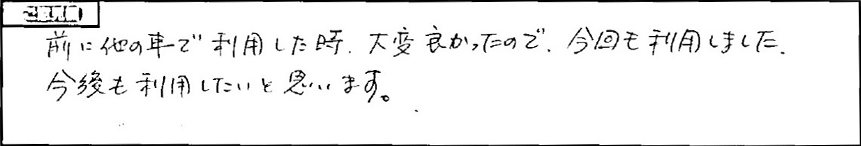 ご意見
前に他の車で利用した時、大変良かったので、今回も利用しました、
今後も利用したいと思います。